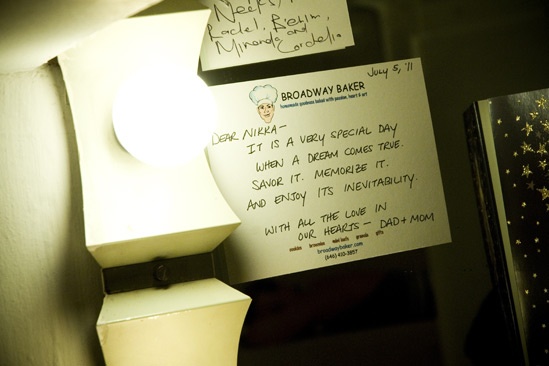 Rachel,
Miranda and
Cordelia
July 5, '11
BROADWAY BAKER
homemade goodness baked with passion, heart & art
DEAR NIKKA—
IT IS A VERY SPECIAL DAY
WHEN A DREAM COMES TRUE.
SAVOR IT. MEMORIZE IT.
AND ENJOY ITS INEVITABILITY.
WITH ALL THE LOVE IN
OUR HEARTS— DAD + MOM
cookies brownies mini tarts granola gifts
broadwaybaker.com
(646) 410-3857